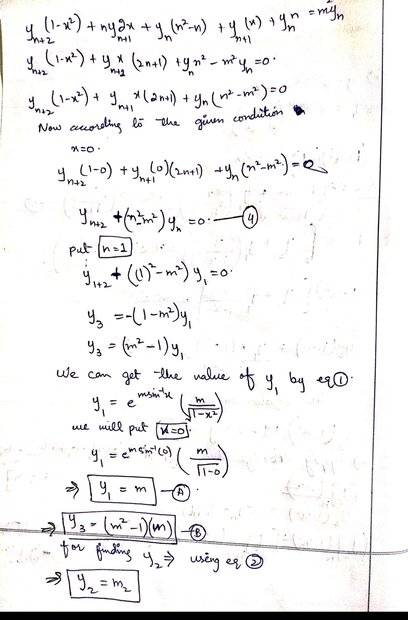 y_{n+2} (1-x²) + n y_{n+1} 2x + y_n (n²-n) + y_{n+1} (x) + y_n n = m² y_n
y_{n+2} (1-x²) + y_{n+2} x (2n+1) + y_n n² - m² y_n = 0.
y_{n+2} (1-x²) + y_{n+1} x (2n+1) + y_n (n²-m²) = 0
Now according to the given condition
x=0.
y_{n+2} (1-0) + y_{n+1} (0)(2n+1) + y_n (n²-m²) = 0
y_{n+2} + (n²-m²) y_n = 0. — ④
put n=1
y_{1+2} + ((1)²-m²) y_1 = 0.
y_3 = -(1-m²) y_1
y_3 = (m²-1) y_1
We can get the value of y_1 by eq ①.
y_1 = e^{m sin⁻¹x} (m/√(1-x²))
we will put x=0.
y_1 = e^{m sin⁻¹(0)} (m/√(1-0))
⇒ y_1 = m — Ⓐ
⇒ y_3 = (m²-1)(m) — Ⓑ
for finding y_2 ⇒ using eq ②
⇒ y_2 = m_2